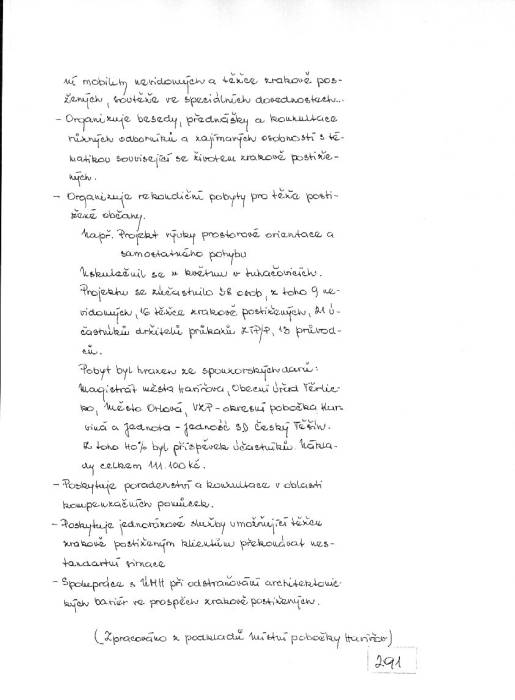 ní mobility nevidomých a těžce zrakově pos-
žených, soutěže ve speciálních dovednostech...
- Organizuje besedy, přednášky a konzultace
různých odborníků a zajímavých osobností s té-
matikou související se životem zrakově postiže-
ných.
- Organizuje rekondiční pobyty pro těžce posti-
žené občany.
Např. Projekt výuky prostorové orientace a
samostatného pohybu
Uskutečnil se v květnu v Luhačovicích.
Projektu se zúčastnilo 58 osob, z toho 9 ne-
vidomých, 16 těžce zrakově postižených, 21 ú-
častníků držitelů průkazů ZTP/P, 13 průvod-
ců.
Pobyt byl hrazen ze sponzorských darů:
Magistrát města Havířova, Obecní úřad Těrlic-
ko, Město Orlová, VZP - okresní pobočka Kar-
viná a Jednota - jedność SD Český Těšín.
Z toho 40% byl příspěvek účastníků. Nákla-
dy celkem 111.100 Kč.
- Poskytuje poradenství a konzultace v oblasti
kompenzačních pomůcek.
- Poskytuje jednorázové služby umožňující těžce
zrakově postiženým klientům překonávat nes-
tandartní situace
- Spolupráce s ÚMH při odstraňování architektonic-
kých bariér ve prospěch zrakově postižených.
(Zpracováno z podkladů místní pobočky Havířov)
291